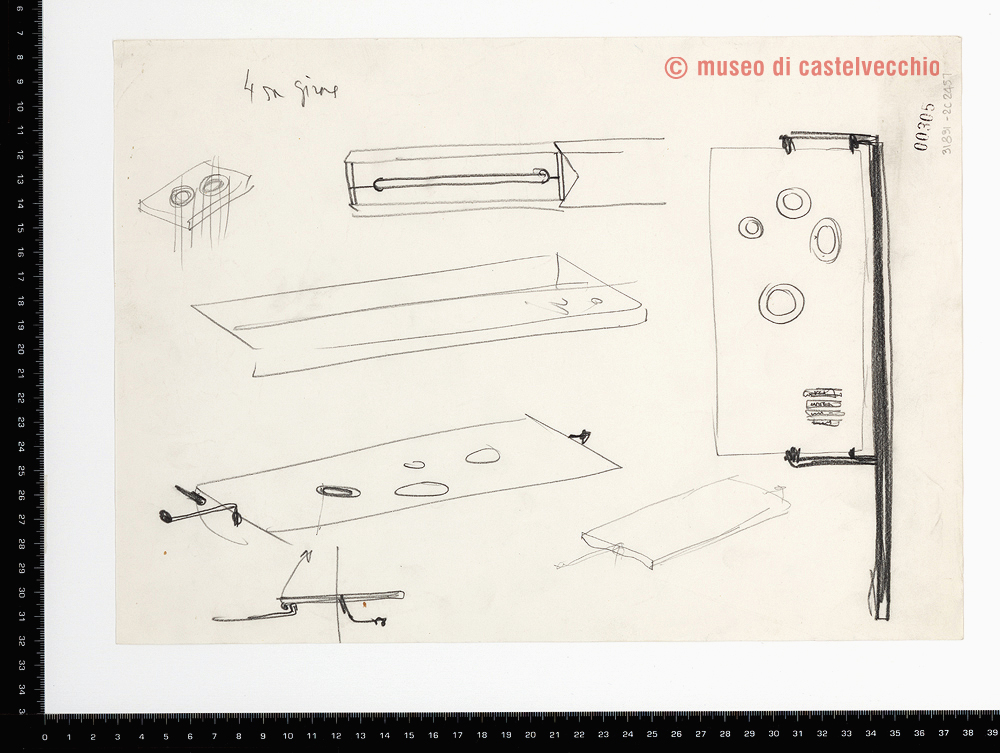 © museo di castelvecchio
4 on girone
00305
31831 - 2C 2457
6
7
8
9
10
11
12
13
14
15
16
17
18
19
20
21
22
23
24
25
26
27
28
29
30
31
32
33
34
0 1 2 3 4 5 6 7 8 9 10 11 12 13 14 15 16 17 18 19 20 21 22 23 24 25 26 27 28 29 30 31 32 33 34 35 36 37 38 39